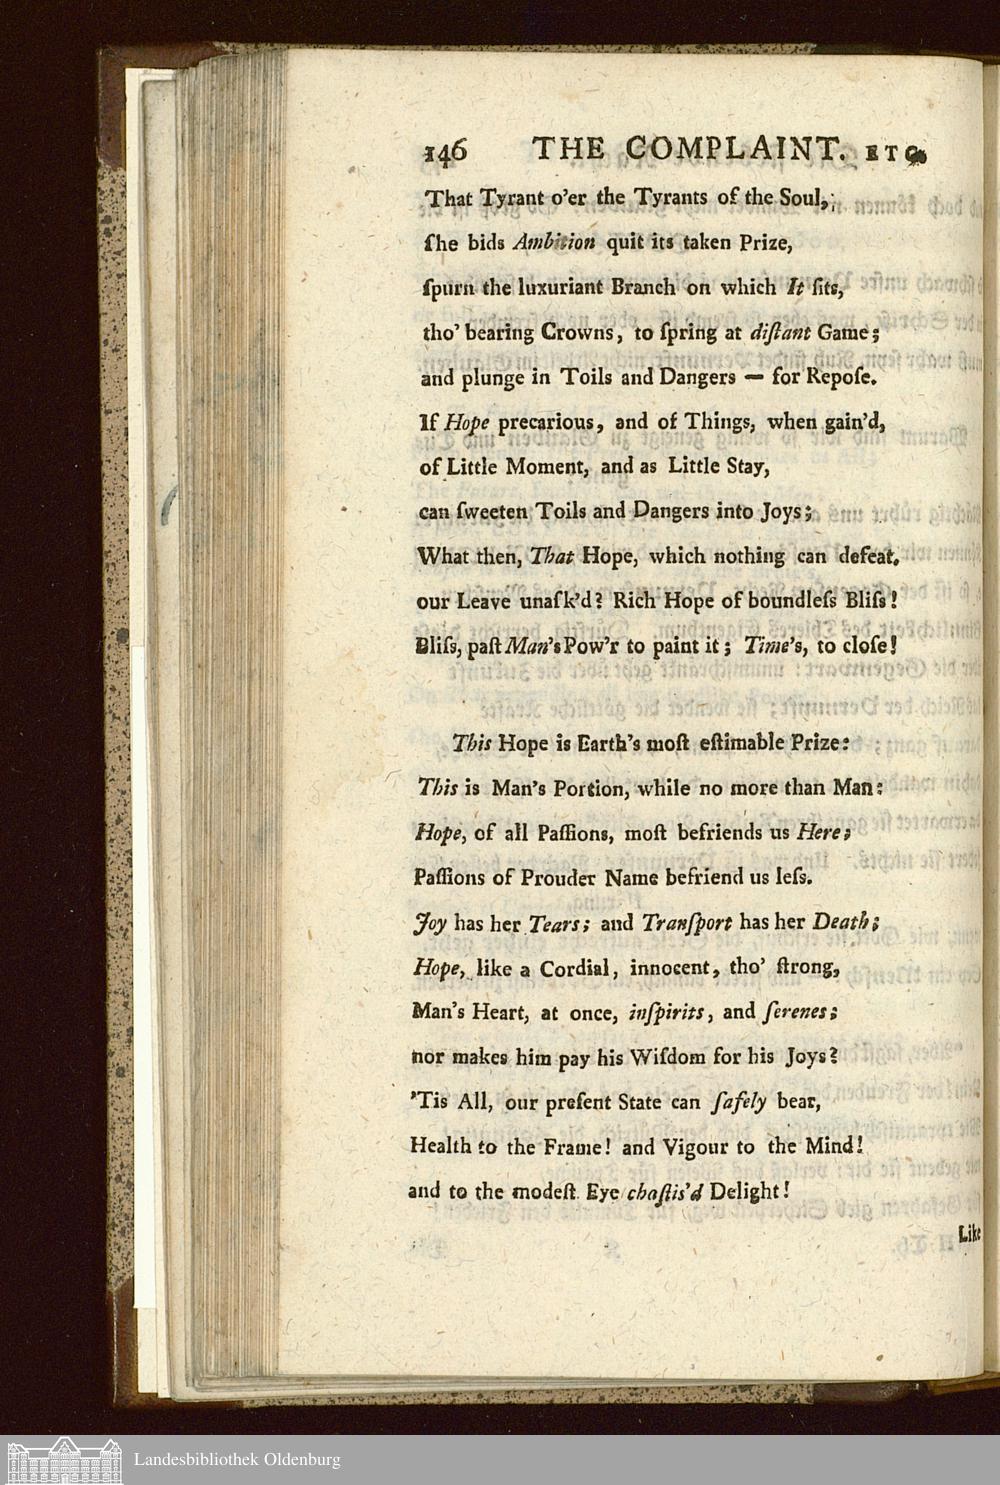 146 THE COMPLAINT. ETC.
That Tyrant o'er the Tyrants of the Soul,
ſhe bids Ambition quit its taken Prize,
ſpurn the luxuriant Branch on which It ſits,
tho' bearing Crowns, to ſpring at diſtant Game;
and plunge in Toils and Dangers — for Repoſe.
If Hope precarious, and of Things, when gain'd,
of Little Moment, and as Little Stay,
can ſweeten Toils and Dangers into Joys;
What then, That Hope, which nothing can defeat.
our Leave unaſk'd? Rich Hope of boundleſs Bliſs!
Bliſs, paſt Man's Pow'r to paint it; Time's, to cloſe!
This Hope is Earth's moſt eſtimable Prize:
This is Man's Portion, while no more than Man:
Hope, of all Paſſions, moſt befriends us Here;
Paſſions of Prouder Name befriend us leſs.
Joy has her Tears; and Tranſport has her Death;
Hope, like a Cordial, innocent, tho' ſtrong,
Man's Heart, at once, inſpirits, and ſerenes;
nor makes him pay his Wiſdom for his Joys?
'Tis All, our preſent State can ſafely bear,
Health to the Frame! and Vigour to the Mind!
and to the modeſt Eye chaſtis'd Delight!
Like
Landesbibliothek Oldenburg